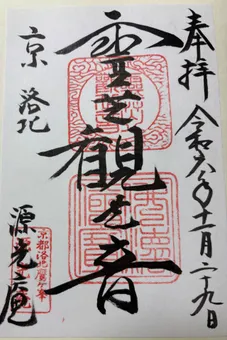 奉拝 令和六年十一月二十九日
霊芝觀世音
京 洛北
源光庵
京都洛北鷹ケ峯